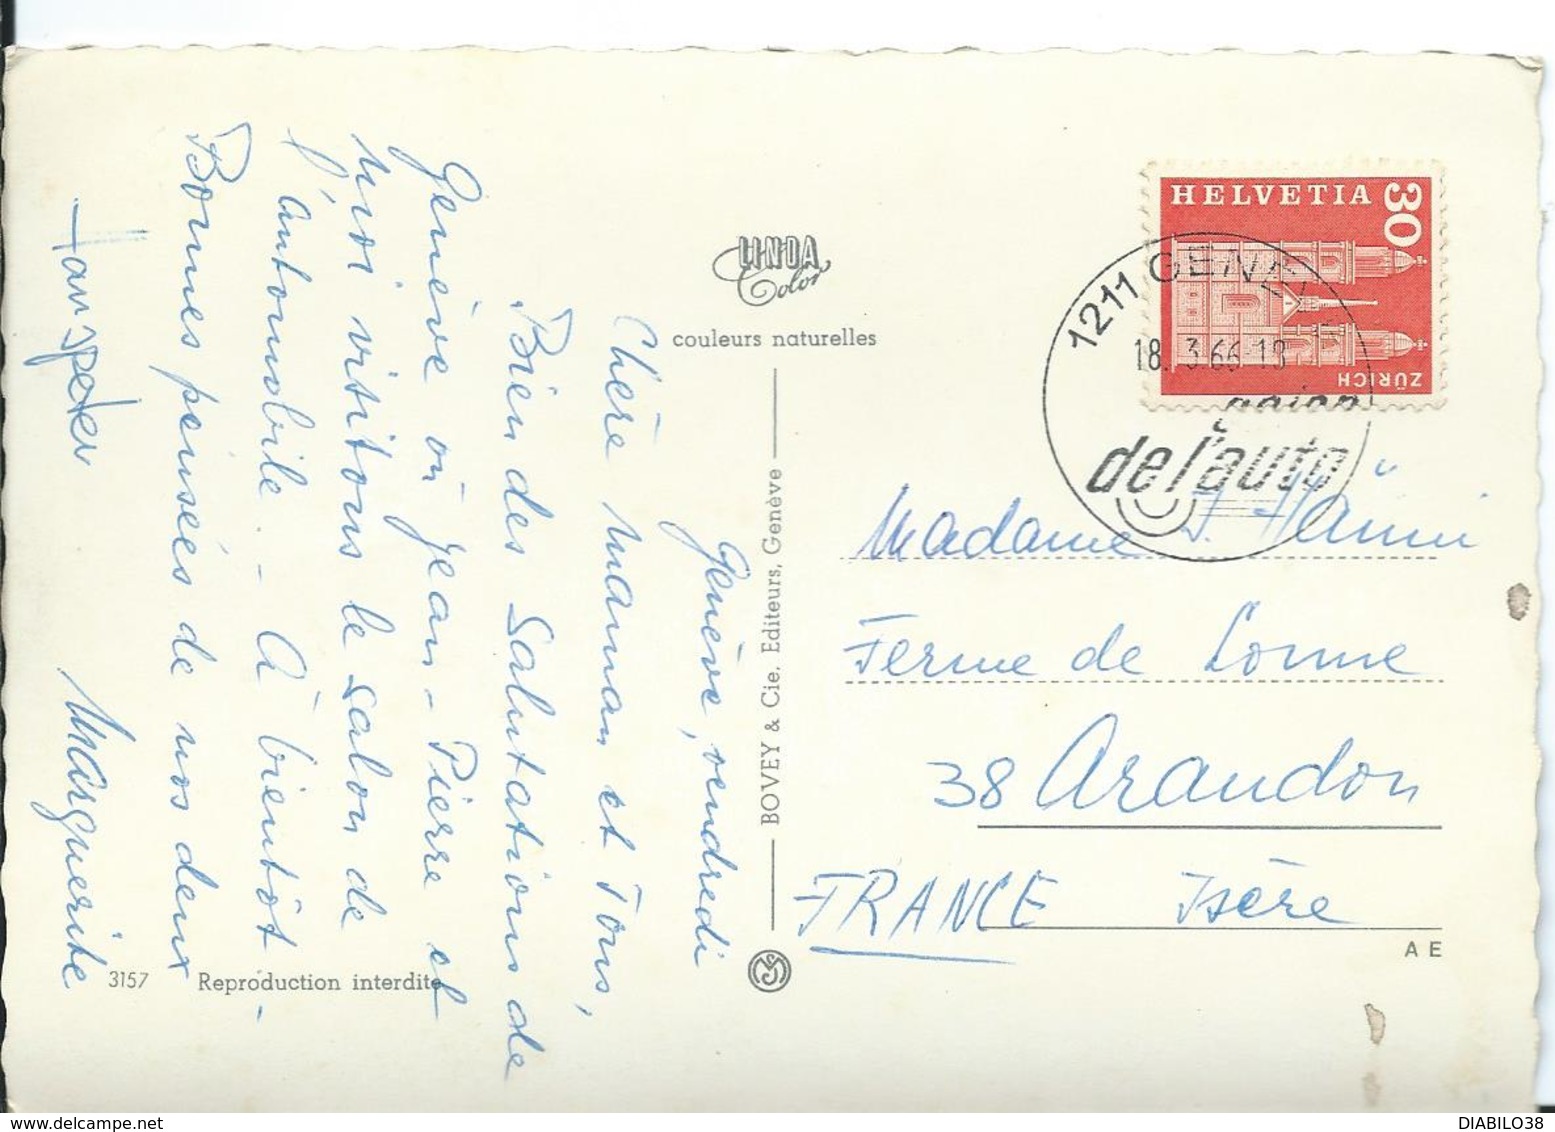 Genève, vendredi
Chère maman et Tous,
Bien des Salutations de
Genève où Jean-Pierre et
moi visitons le Salon de
l'automobile. - A bientôt -
Bonnes pensées de nos deux
Marguerite
Hanspeter
3157 Reproduction interdite
LINDA
Color
couleurs naturelles
BOVEY & Cie. Editeurs, Genève
HELVETIA
30
ZÜRICH
1211 GENE
18. 3.66-18
de l'auto
Madame J. Hänni
Ferme de Lonne
38 Arandon
FRANCE Isère
A E
DIABILO38